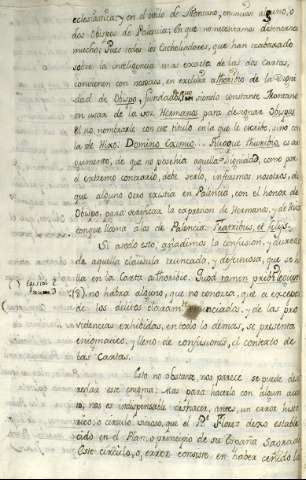 eclesiastica; y en el estilo de Montano, enuncian alguno, o
dos Obispos de Palencia; En que no necesitamos detenernos
mucho; Pues todos los Cathedraticos, que han trabajado
sobre la inteligencia mas exacta de las dos Cartas,
convienen con nosotros, en excluir a thoribio de la Digni-
dad de Obispo, fundados en que siendo constante Montano
en usar de la voz Hermanos para designar Obispos
el no nombrarle con este titulo en la que le escrive, sino con
la de Hixo: Domino eximio Filioque thuribio, es ar-
gumento, de que no posehia aquella dignidad, como por
el extremo contrario debe serlo, inferirnos nosotros, de
que alguno otro existia en Palencia, con el honor de
Obispo, para verificar la expresion de Hermano, y de Hixo
conque llama a los de Palencia: Fratribus, et filiis.
Si a todo esto, añadimos la confusion, y
de aquella clausula truncada, y defectuosa, que se ha-
lla en la Carta a thoribio: Quod tamen
no habra alguno, que no conozca, que a excepcion
de los delitos claramente enunciados, y de las pro-
videncias exhibidas, en todo lo demas, se presenta
enigmatico, y lleno de confusiones, el contexto de
las Cartas.
Esto no obstante, nos parece se puede de
este enigma. Mas para hacerlo con algun acier-
to, nos es indispensable deshacer, antes, un error histo-
rico, o circulo vicioso, que el Pe. Florez dexo estable-
cido en el Plan, o principio de su España Sagrada.
Este circulo, o, error consiste en haber ceñido la